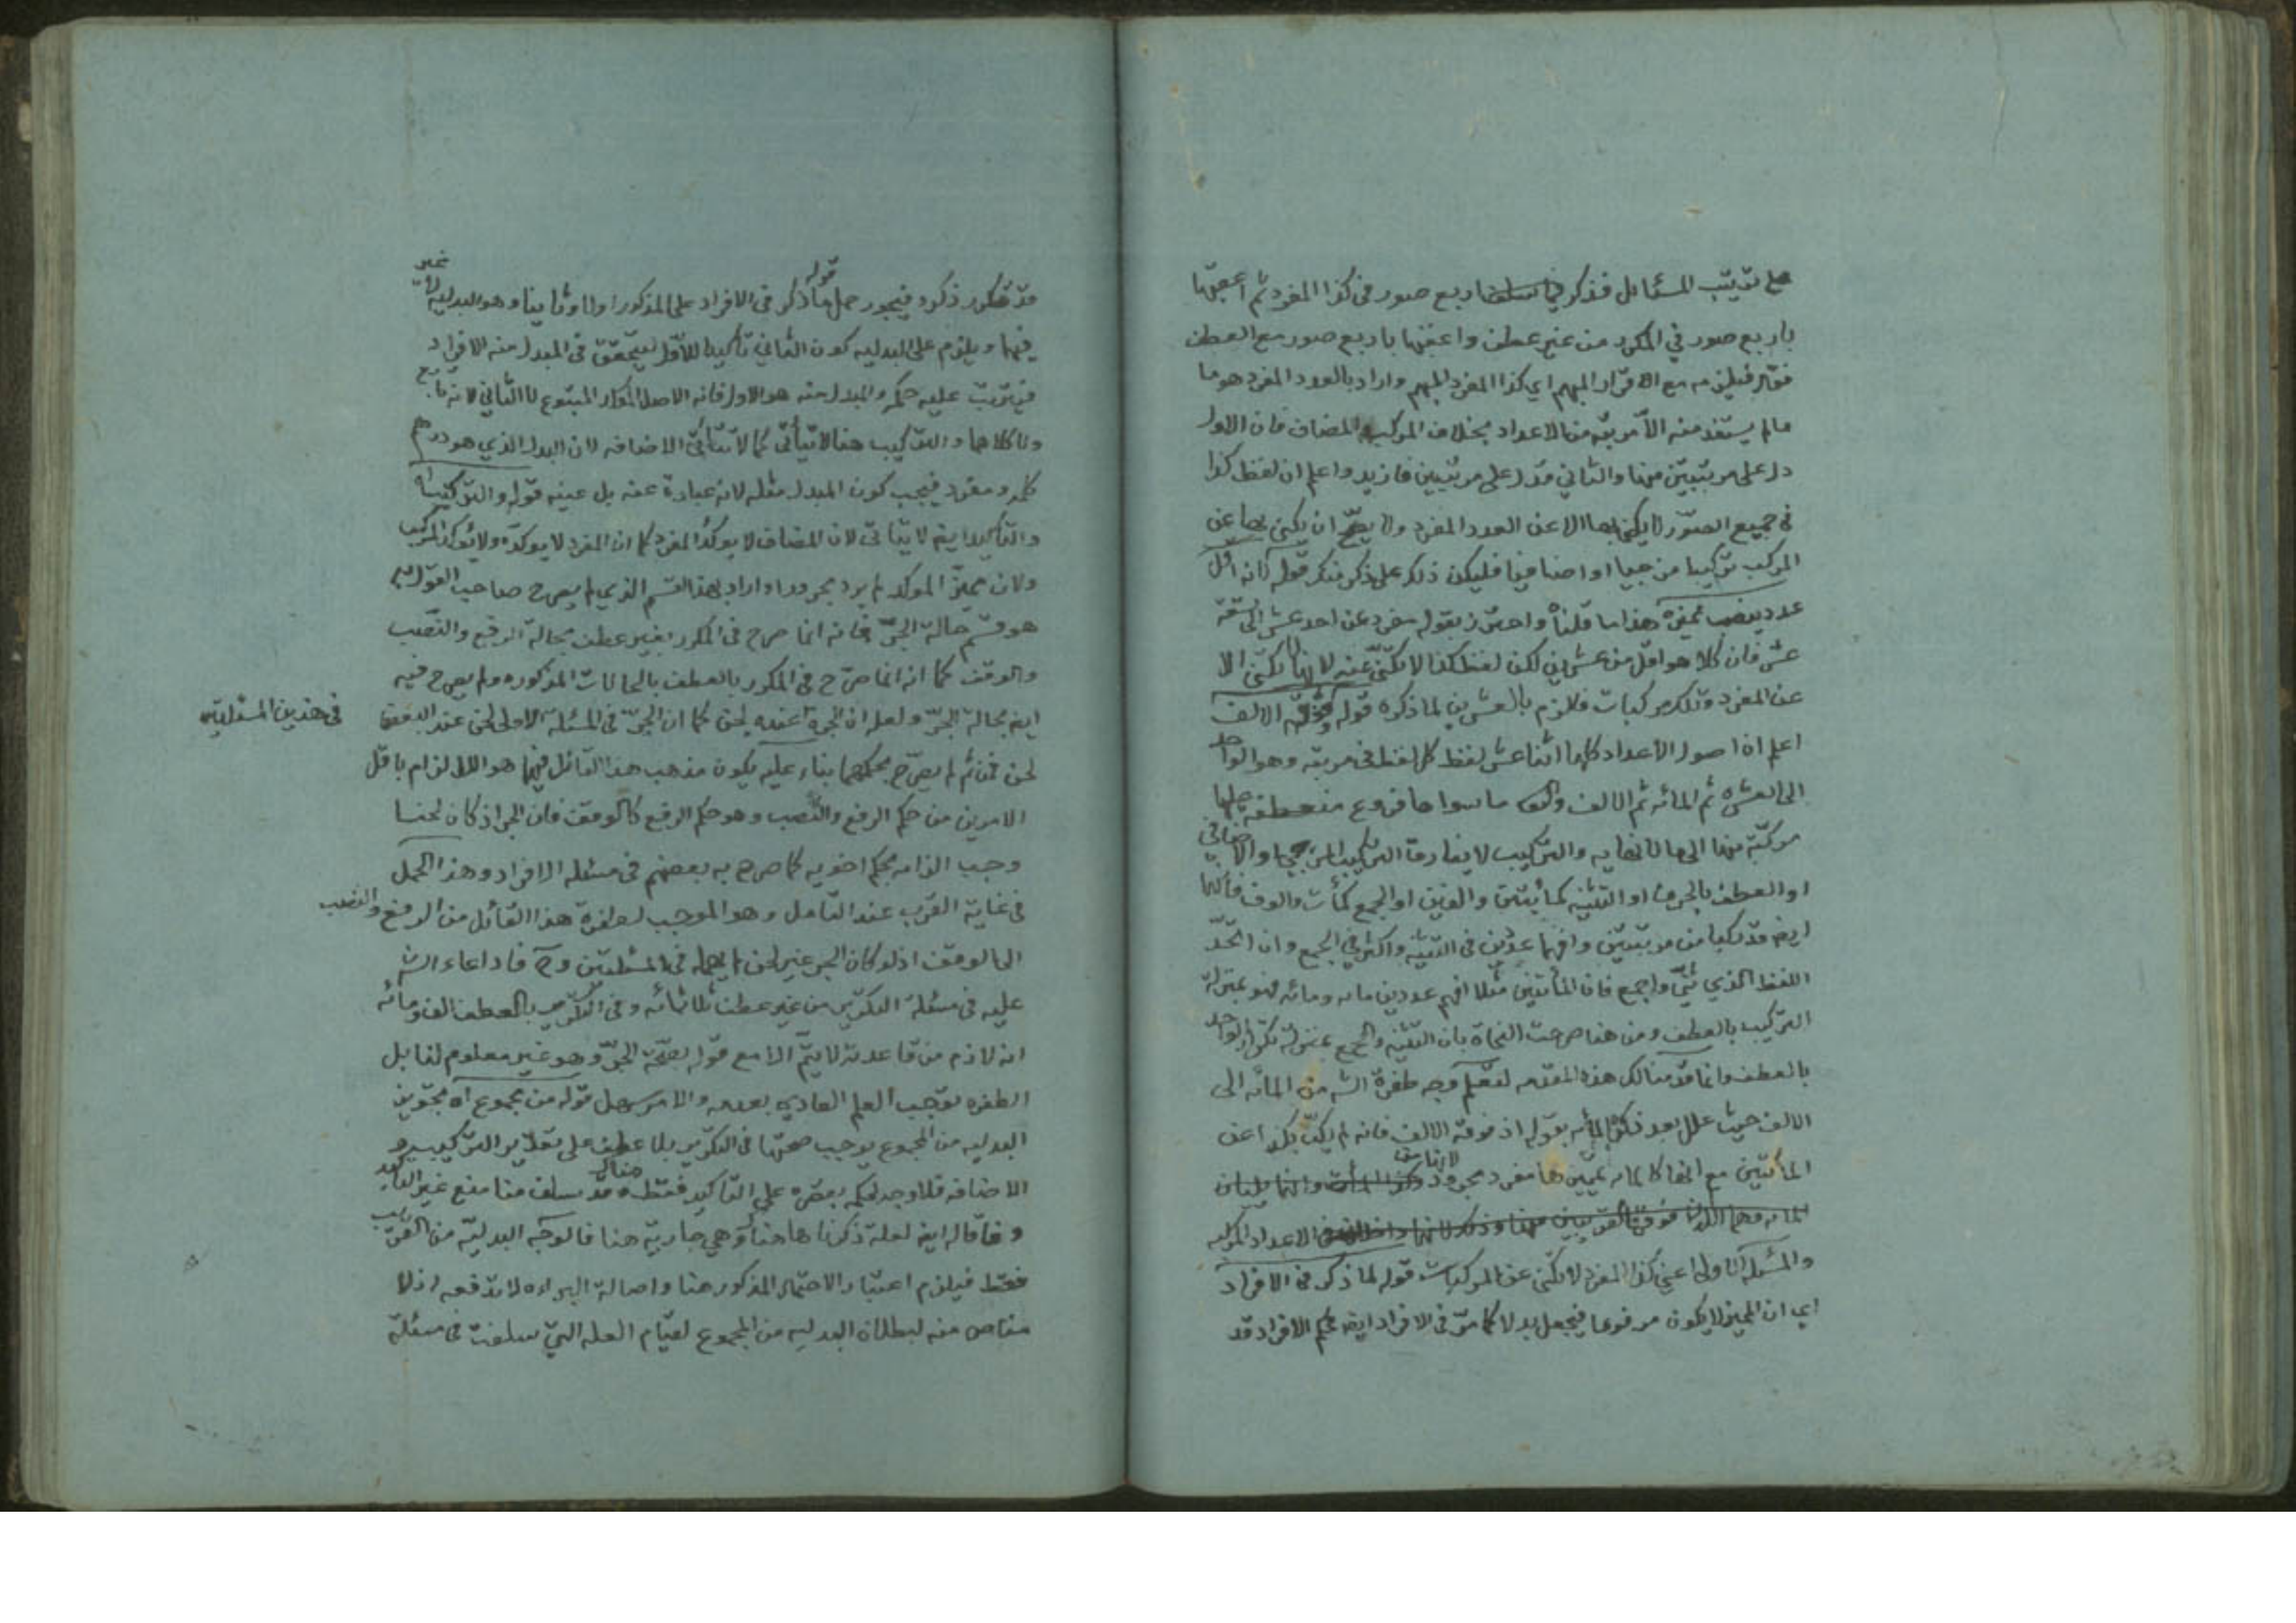 على ترتيب المسائل فذكر اربع صور فى كذا المفرد ثم اعقبها
باربع صور في المكرر من غير عطف واعقبها باربع صور مع العطف
فقوله فيلزمه مع الاقرار المبهم اي كذا المفرد المبهم واراد بالعدد المفرد هو ما
مالم يستفد منه الا مرتبة من الاعداد بخلاف المركب والمضاف فان الاول
دل على مرتبتين منها والثاني قد دل على مرتبتين فازيد واعلم ان لفظ كذا
في جميع الصور لا يكنى بها الا عن العدد المفرد ولا يصح ان يكنى بها عن
المركب تركيبا مزجيا او اضافيا فليكن ذلك على ذكر منك قوله لانه اقل
عدد ينصب مميزه هذا ما قلناه واحترز بقوله مفرد عن احد عشر الى تسعة
عشر فان كلا هو اقل من عشرين لكن لفظ كذا لا يكنى عنه لانها لا يكنى الا
عن المفرد وتلك مركبات فلزم بالعشرين لما ذكره قوله وفوقه الالف
اعلم ان اصول الأعداد كلها اثنا عشر لفظ كل لفظ فى مرتبة وهو الواحد
الى العشرة ثم المائه ثم الالف وكل ما سواها فروع منعطفه عليها
مركبة منها الى ما لا نهايه والتركيب لا يفارق التركيب المزجي او الاضافي
او العطف بالحرف او التثنيه كمائتين والفين او الجمع كمئات والوف فانهما
ايضه قد ركبا من مرتبتين وافهما عددين فى التثنيه واكثر في الجمع وان اتحد
اللفظ الذي ثني واجمع فان المائتين مثلا افهم عددين مائه ومائه فهو بمنزلة
التركيب بالعطف ومن هنا صرحت النحاة بان التثنيه والجمع بمنزلة تكرار الواحد
بالعطف وانما قدمنا لك هذه المقدمه لتعلم وجه طفرة الشه من المائه الى
الالف حيث علل بعد ذكر المائه بقوله اذ فوقه الالف فانه لم يكن بكذا عن
المائتين مع انها كالمائه تمييزها مفرد مجرور
الاعداد المركبه
والمسئلة الاولى اعني كذا المفرد لا يكنى عن المركبات قوله لما ذكر فى الافراد
اي ان المميز لا يكون مرفوعا فيجعل بدلا كما مر فى الافراد ايضه بحكم الافراد قد
قد تكرر ذكره فيجوز حمل قوله ما ذكر فى الافراد على المذكور اولا وثانيا وهو البدليه لانه غير
فيهما ويلزم على البدليه كون الثاني تأكيدا للأول ليتحقق فى المبدل منه الافراد
فيترتب عليه حكمه والمبدل منه هو الاول فانه الاصل المؤكد المتبوع لا الثاني لانه تابع
ولا كلاهما والتركيب هنا لا يتأتى كما لا تتأتى الاضافه لان البدل الذي هو درهم
كلمه ومفرد فيجب كون المبدل مثله لانه عبارة عنه بل عينه قوله والتركيب اه
والتأكيد ايضه لا يتاتى لان المضاف لا يؤكد المفرد كما ان المفرد لا يؤكده ولا يؤكد المركب
ولان مميز المؤكد لم يرد مجرورا واراد بهذا القسم الذي لم يصرح صاحب القول به
هو قسم حالة الجر فانه انما صرح فى المكرر بغير عطف بحالة الرفع والنصب
والوقف كما انه انما صرح في المكرر بالعطف بالحالات المذكوره ولم يصرح فيه
ايضه بحالة الجر ولعله ان الجر عنده لحن كما ان الجر فى المسئلة الاولى لحن عند البعض
فى هذين المسئلتين
لحن فمن ثم لم يصرح بحكمهما بناء عليه يكون مذهب هذا القائل فيهما هو الالزام باقل
الامرين من حكم الرفع والنصب وهو حكم الرفع كالوقف فان الجر اذ كان لحنا
وجب الزامه بحكم اخويه كما صرح به بعضهم فى مسئلة الافراد وهذا الحمل
فى غاية القرب عند التامل وهو الموجب لطفرة هذا القائل من الرفع والنصب
الى الوقف اذ لو كان الجر غير لحن لم يهمله فى المسئلتين وح فادعاء الشه
عليه فى مسئلة التكرير من غير عطف ثلاثمائه وفى المكرر بالعطف الف ومائه
انه لازم من قاعدته لا يتم الا مع قوله بصحة الجر وهو غير معلوم لنا بل
الطفره توجب العلم العادي بعدمه والامر سهل قوله من مجموع اه تجويز
البدليه من المجموع يوجب صحتها فى التكرير بلا عطف على تقدير التركيب و
الاضافه فلا وجه لحكمه بقصره على التأكيد فقط هناك وقد سلف منا منع غير التأكيد
وفاقا له ايضه لعلة ذكرناها هناك وهي جارية هنا فالوجه البدليه من القريب
فقط فيلزم اعتبار الاحتمال المذكور هنا واصالة البراءه لا تدفعه اذ لا
مناص منه لبطلان البدليه من المجموع لقيام العله التي سلفت فى مسئلة